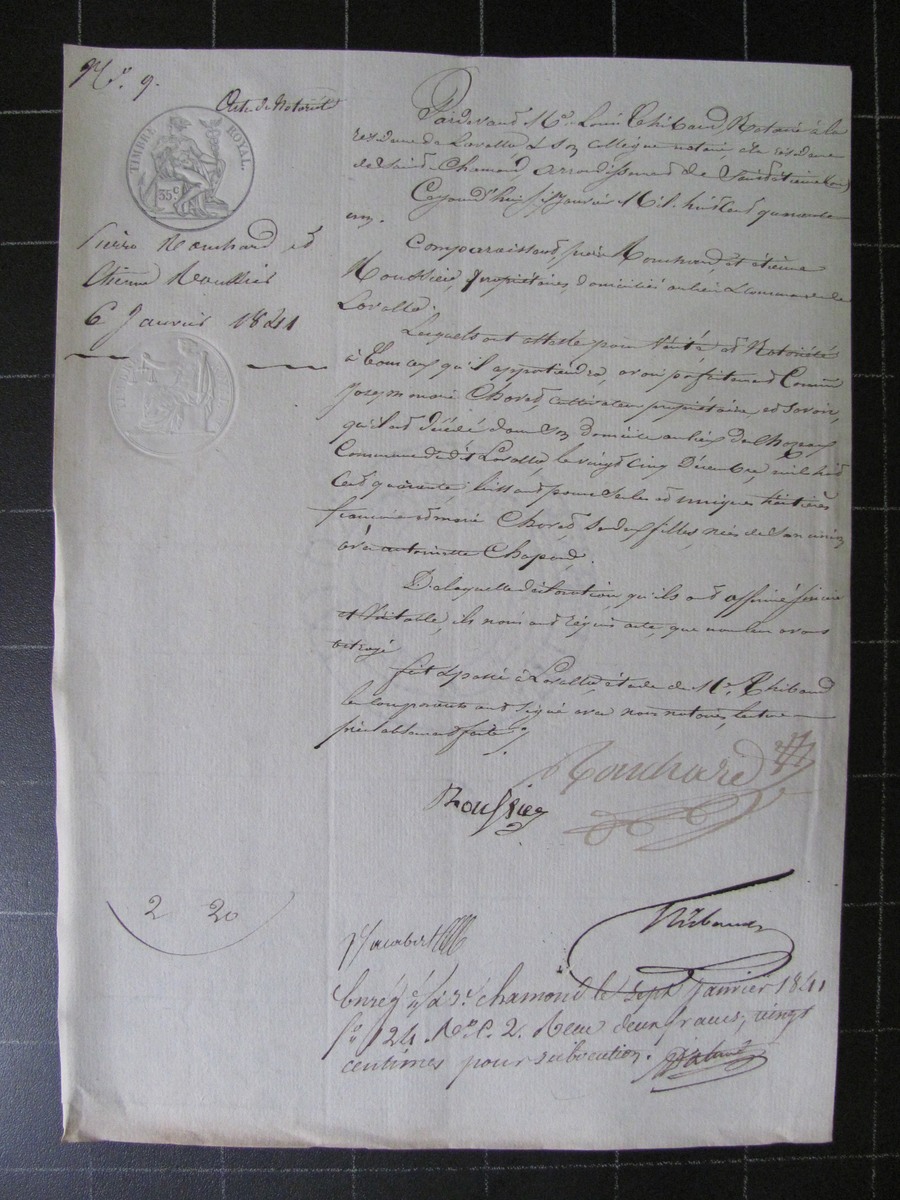 N.º 9.
Acte de Notoriété
TIMBRE ROYAL.
35 c
Pierre Mouchard et
Etienne Roussier
6 Janvier 1841
Pardevant Me. Louis Thibaud, Notaire à la
résidence de Lavalla & son collègue notaire, à la résidence
de Saint-Chamond, arrondissement de Saint-étienne (Loire)
Cejourd'hui six Janvier Mil huit cent quarante
un.
Comparaissent, pierre Mouchard, et étienne
Roussier, propriétaires, domiciliés au lieu & commune de
Lavalla;
Lesquels ont attesté pour Vérité et Notoriété
à tous ceux qu'il appartiendra, avoir parfaitement Connu
marie Chovet, cultivateur propriétaire et savoir,
qu'il est décédé dans son domicile au lieu de
Commune de dt Lavalla, le vingt Cinq Décembre, mil huit
cent quarante; laissant pour seules et uniques héritières
et marie Chovet, ses deux filles, nées de son union
avec antoinette Chapard.
De laquelle déclaration, qu'ils ont affirmé sincère
et Véritable, ils nous ont requis acte, que nous leur avons
octroyé
fait & passé à Lavalla, étude de Me. Thibaud
les comparants ont signé avec nous notaires, lecture
préalablement faite./.
Mouchard
Roussier
2 20
Thibaud
Enreg.té à St. chamond le sept Janvier 1841
fº 124 Rº C. 2. Reçu deux francs, vingt
centimes pour subvention.